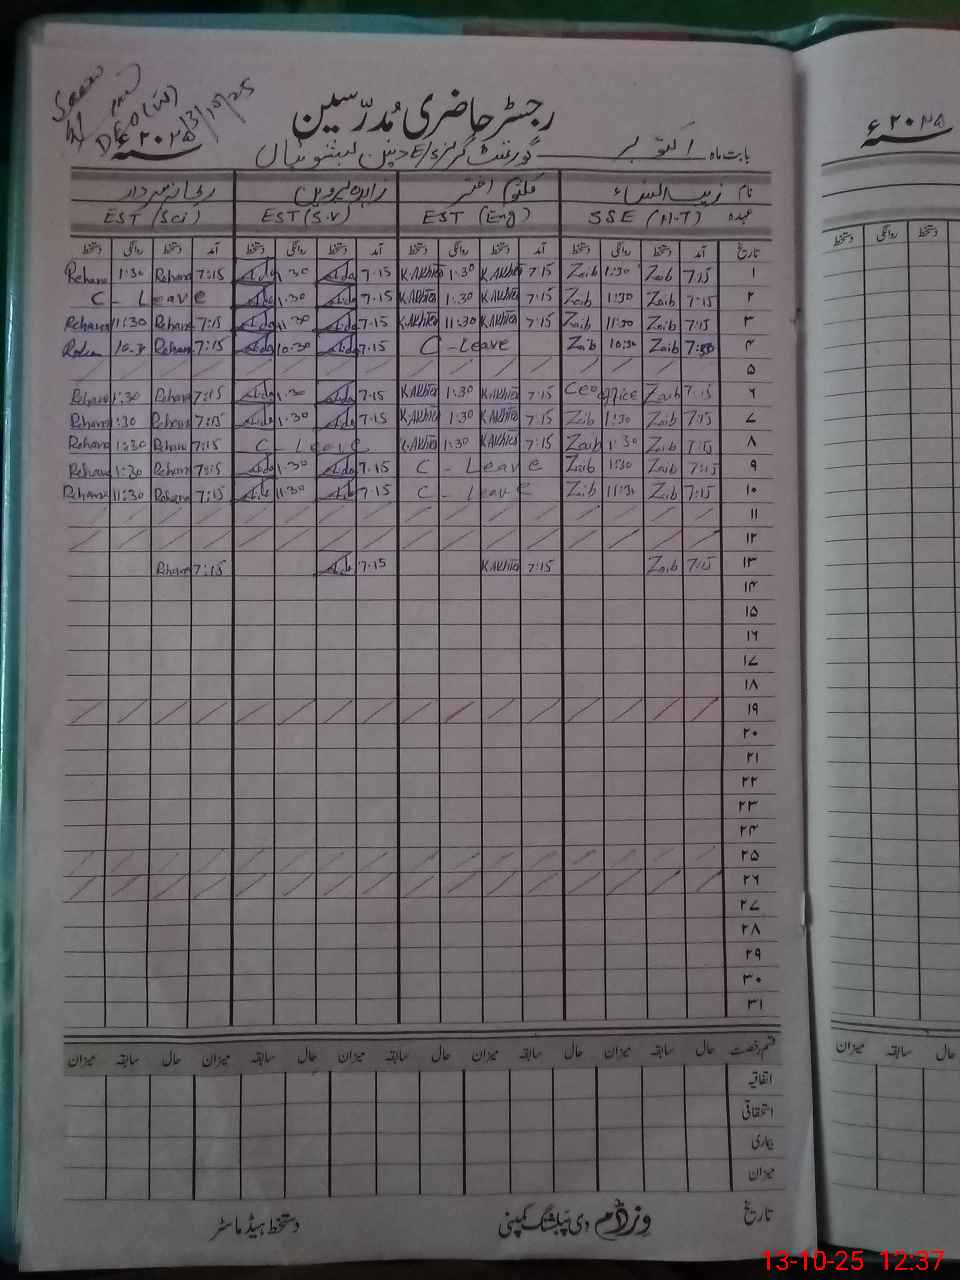 Seen
DEO (W)
13/10/25
رجسٹر حاضری مُدرّسین
بابت ماہ اکتوبر گورنمنٹ گرلز E/S ۲۰۲۵ء
۲۰۲۵ء
نام زیب النساء کلثوم اختر زاہدہ پروین ریحانہ سردار
عہدہ SSE (M-T) EST (Eng) EST (S.V) EST (Sci)
تاریخ آمد دستخط روانگی دستخط آمد دستخط روانگی دستخط آمد دستخط روانگی دستخط آمد دستخط روانگی دستخط
دستخط روانگی دستخط
۱ 7:15 Zaib 1:30 Zaib 7:15 K.Akhter 1:30 K.Akhter 7.15 1.30 7:15 Rehana 1:30 Rehana
۲ 7:15 Zaib 1:30 Zaib 7:15 K.Akhter 1:30 K.Akhter 7.15 1.30 C - Leave
۳ 7:15 Zaib 11:30 Zaib 7:15 K.Akhter 11:30 K.Akhter 7.15 11.30 7:15 Rehana 11:30 Rehana
۴ Zaib 10:30 Zaib C - Leave 7.15 10.30 7:15 Rehana 10.30
۵
۶ 7:15 Zaib Ceo office 7:15 K.Akhter 1:30 K.Akhter 7.15 1.30 7:15 Rehana 1:30 Rehana
۷ 7:15 Zaib 1:30 Zaib 7:15 K.Akhter 1:30 K.Akhter 7.15 1.30 7:15 Rehana 1:30 Rehana
۸ 7:15 Zaib 1:30 Zaib 7:15 K.Akhter 1:30 K.Akhter C - Leave 7:15 Rehana 1:30 Rehana
۹ 7:15 Zaib 1:30 Zaib C - Leave 7.15 1.30 7:15 Rehana 1:30 Rehana
۱۰ 7:15 Zaib 11:30 Zaib C - Leave 7.15 11.30 7:15 Rehana 11:30 Rehana
۱۱
۱۲
۱۳ 7:15 Zaib 7:15 K.Akhter 7.15 7:15 Rehana
۱۴
۱۵
۱۶
۱۷
۱۸
۱۹
۲۰
۲۱
۲۲
۲۳
۲۴
۲۵
۲۶
۲۷
۲۸
۲۹
۳۰
۳۱
قسم رخصت حال سابقہ میزان حال سابقہ میزان حال سابقہ میزان حال سابقہ میزان حال سابقہ میزان
حال سابقہ میزان
اتفاقیہ
استحقاقی
بیماری
میزان
تاریخ وزڈم دی پبلشنگ کمپنی دستخط ہیڈ ماسٹر
13-10-25 12:37